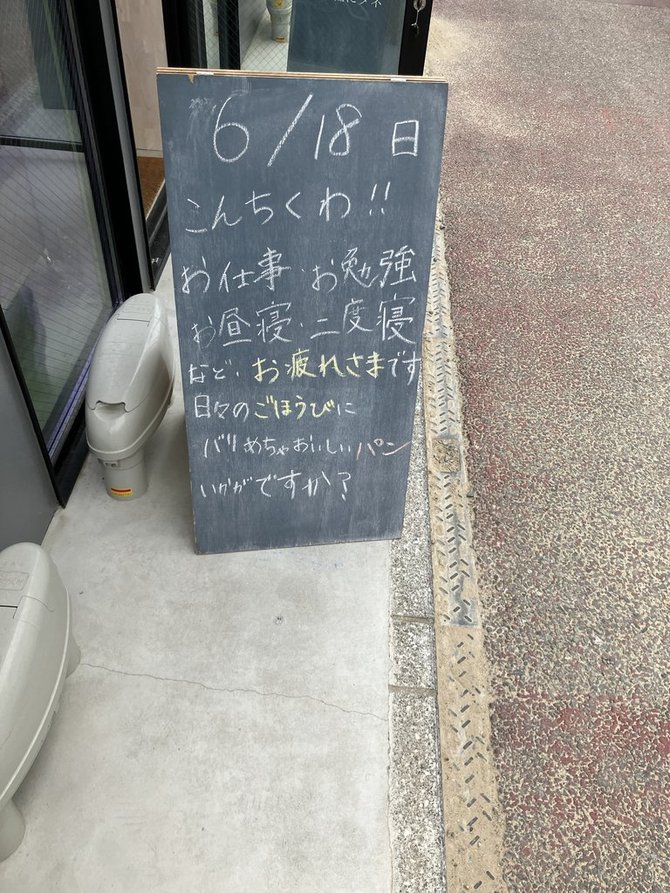 6/18 日
こんちくわ!!
お仕事・お勉強
お昼寝・二度寝
など、お疲れさまです
日々のごほうびに
バリめちゃおいしいパン
いかがですか?